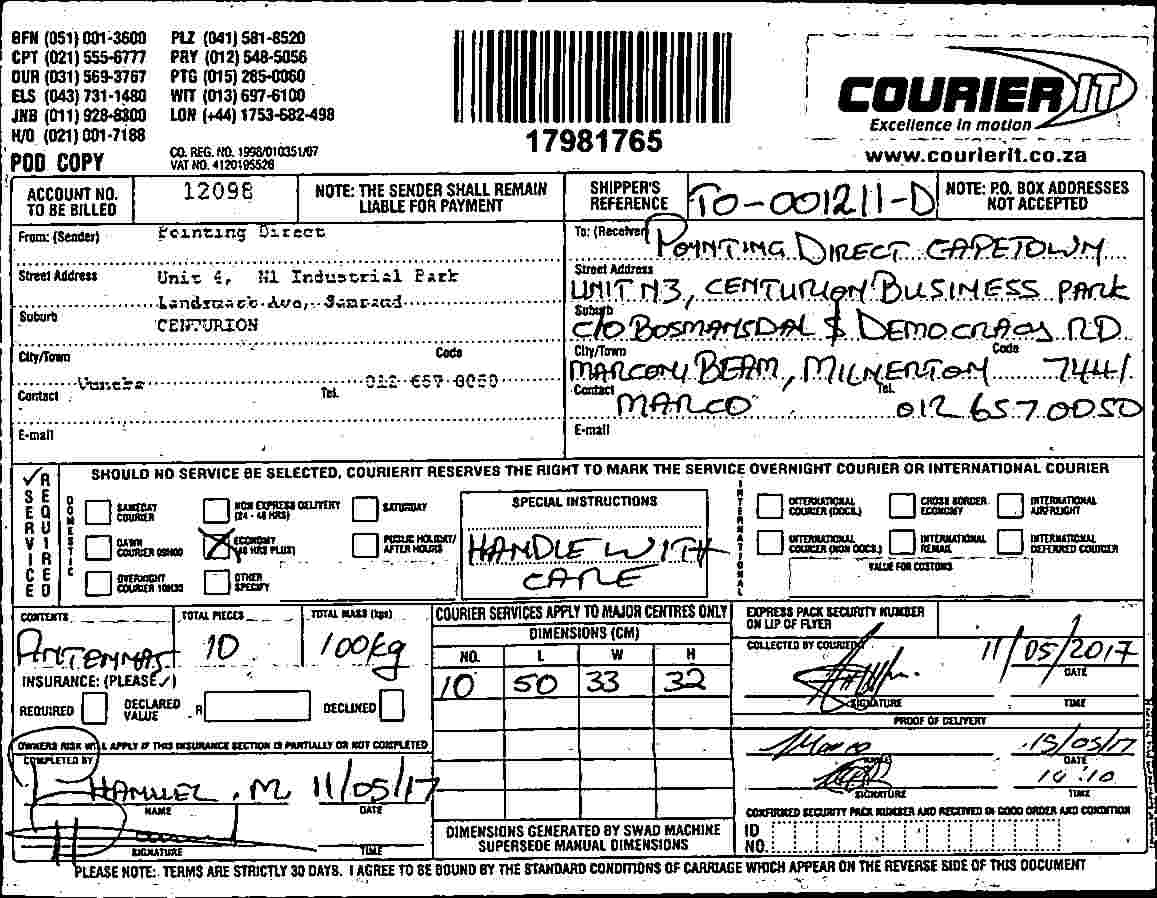 BFN (051) 001-3600 PLZ (041) 581-8520
CPT (021) 555-6777 PRY (012) 548-5056
DUR (031) 569-3767 PTG (015) 285-0060
ELS (043) 731-1480 WIT (013) 697-6100
JNB (011) 928-8300 LON (+44) 1753-682-498
H/O (021) 001-7188
POD COPY
CO. REG. NO. 1998/010351/07
VAT NO. 4120195526
17981765
COURIER IT
Excellence in motion
www.courierit.co.za
ACCOUNT NO. TO BE BILLED
12098
NOTE: THE SENDER SHALL REMAIN LIABLE FOR PAYMENT
SHIPPER'S REFERENCE
TO-001211-D
NOTE: P.O. BOX ADDRESSES NOT ACCEPTED
From: (Sender) Pointing Direct
Street Address Unit 4, N1 Industrial Park
Landmark Ave, Samrand
Suburb CENTURION
City/Town Code
Contact Tel. 012 657 0050
E-mail
To: (Receiver) POYNTING DIRECT CAPETOWN
Street Address
UNIT N3, CENTURION BUSINESS PARK
Suburb
C/O BOSMANSDAL & DEMOCRACY RD
City/Town Code
MARCONI BEAM, MILNERTON 7441
Contact MARCO Tel. 012 657 0050
E-mail
✓ SERVICE REQUIRED
SHOULD NO SERVICE BE SELECTED, COURIERIT RESERVES THE RIGHT TO MARK THE SERVICE OVERNIGHT COURIER OR INTERNATIONAL COURIER
DOMESTIC
SAMEDAY COURIER
NON EXPRESS DELIVERY (24 - 48 HRS)
SATURDAY
DAWN COURIER 09H00
X ECONOMY (48 HRS PLUS)
PUBLIC HOLIDAY/ AFTER HOURS
OVERNIGHT COURIER 10H30
OTHER SPECIFY
SPECIAL INSTRUCTIONS
HANDLE WITH
CARE
INTERNATIONAL
INTERNATIONAL COURIER (DOCS.)
CROSS BORDER ECONOMY
INTERNATIONAL AIRFREIGHT
INTERNATIONAL COURIER (NON DOCS.)
INTERNATIONAL REMAIL
INTERNATIONAL DEFERRED COURIER
VALUE FOR CUSTOMS
CONTENTS TOTAL PIECES TOTAL MASS (kgs)
ANTENNAS 10 100kg
INSURANCE: (PLEASE ✓)
REQUIRED DECLARED VALUE R DECLINED
OWNERS RISK WILL APPLY IF THIS INSURANCE SECTION IS PARTIALLY OR NOT COMPLETED
COMPLETED BY
M 11/05/17
NAME DATE
SIGNATURE TIME
COURIER SERVICES APPLY TO MAJOR CENTRES ONLY
DIMENSIONS (CM)
NO. L W H
10 50 33 32
DIMENSIONS GENERATED BY SWAD MACHINE SUPERSEDE MANUAL DIMENSIONS
EXPRESS PACK SECURITY NUMBER ON LIP OF FLYER
COLLECTED BY COURIER
11/05/2017
DATE
SIGNATURE TIME
PROOF OF DELIVERY
Marco 15/05/17
NAME DATE
10:10
SIGNATURE TIME
CONFIRMED SECURITY PACK NUMBER AND RECEIVED IN GOOD ORDER AND CONDITION
ID NO.
PLEASE NOTE: TERMS ARE STRICTLY 30 DAYS. I AGREE TO BE BOUND BY THE STANDARD CONDITIONS OF CARRIAGE WHICH APPEAR ON THE REVERSE SIDE OF THIS DOCUMENT